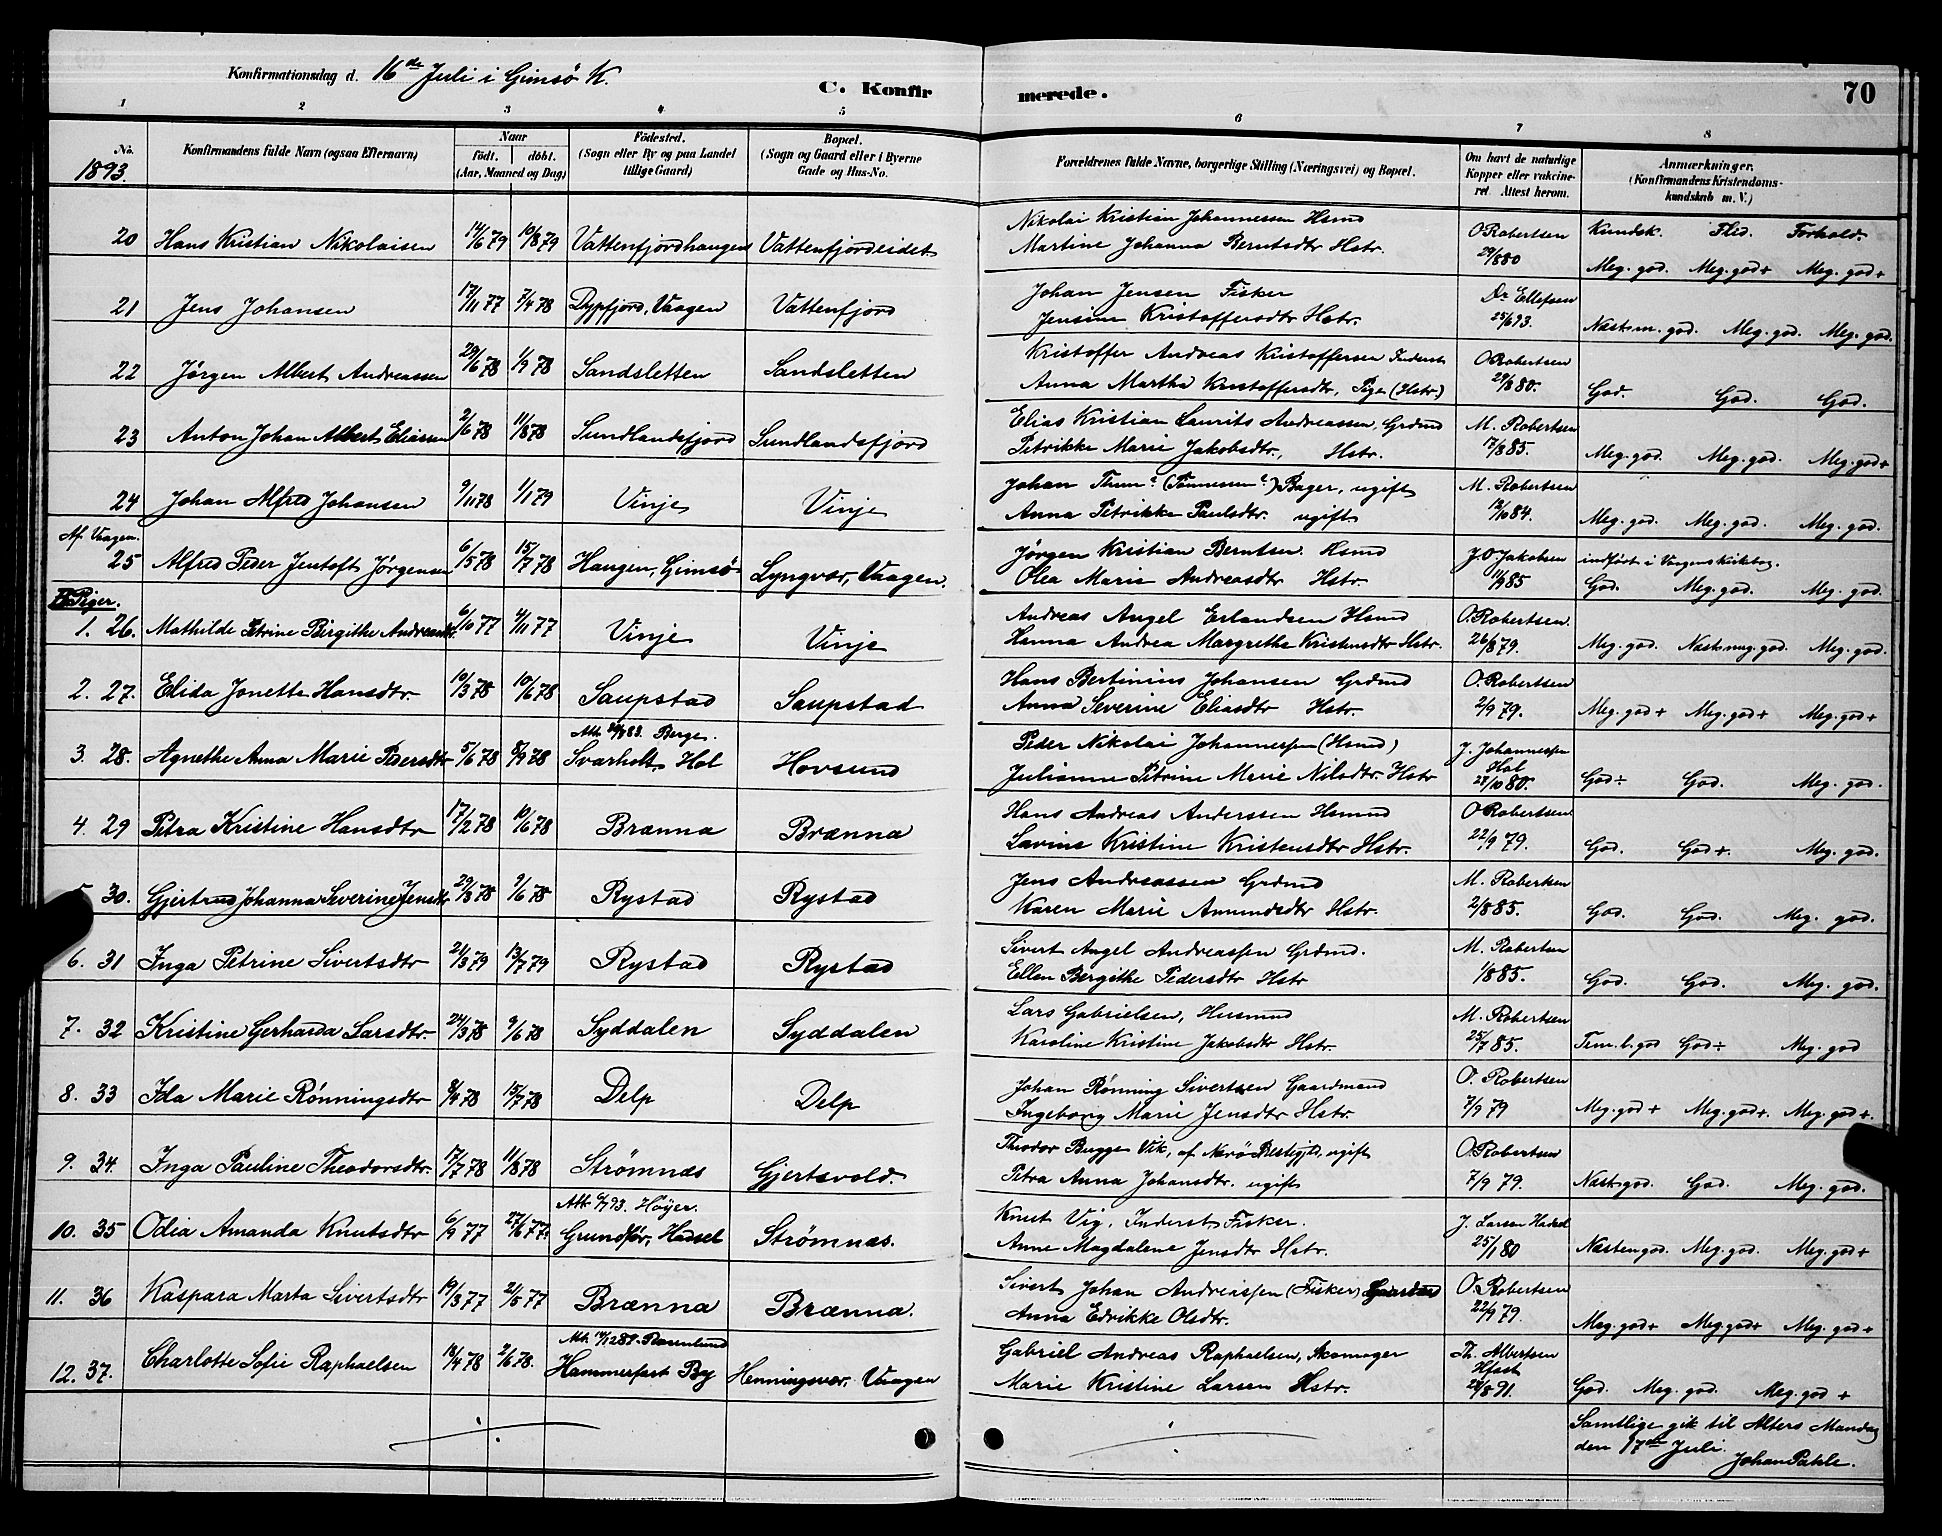 Konfirmationsdag d. 16de Juli i Gimsø K.
C. Konfirmerede.
70
1 2 3 4 5 6 7 8
No.
1893.
Konfirmandens fulde Navn (ogsaa Efternavn)
Naar
födt. döbt.
(Aar, Maaned og Dag)
Födested.
(Sogn eller By og paa Landet
tillige Gaard)
Bopæl.
(Sogn og Gaard eller i Byerne
Gade og Hus-No.
Forældrenes fulde Navne, borgerlige Stilling (Næringsvei) og Bopæl.
Om havt de naturlige
Kopper eller vakcine-
ret. Attest herom.
Anmærkninger.
(Konfirmandens Kristendoms-
kundskab m. V.)
Kundsk. Flid. Forhold.
20 Hans Kristian Nikolaisen 14/6 79 10/8 79 Vattenfjordhaugen Vattenfjordeidet
Nikolai Kristian Johannessen Hsmd
Martine Johanna Berntsdtr Hstr.
O Robertsen
29/8 80
Meg. god. Meg. god+ Meg. god+
21 Jens Johansen 17/11 77 7/4 78 Dypfjord, Vaagen Vattenfjord
Johan Jensen Fisker
Jensine Kristoffersdtr Hstr.
Dr Ellefsen
25/6 93.
Næst m. god. Meg. god. Meg. god.
22 Jørgen Albert Andreassen 29/6 78 1/9 78 Sandsletten Sandsletten
Kristoffer Andreas Kristoffersen Inderst
Anna Martha Kristoffersdtr, Pige (Hstr.)
O Robertsen
29/8 80.
God. God. God.
23 Anton Johan Albert Eliassen 2/6 78 11/8 78 Sundlandsfjord Sundlandsfjord
Elias Kristian Laurits Andreassen, Grdmd
Petrikke Marie Jakobsdtr, Hstr.
M. Robertsen
17/8 85.
Meg. god. Meg. god. Meg. god+
24 Johan Alfred Johansen 9/11 78 1/1 79 Vinje Vinje
Johan Thun? (Tønnesen?) Bager, ugift
Anna Petrikke Paulsdtr. ugift
M. Robertsen
12/10 84.
Meg. god. Meg. god. Meg. god.
Af Vaagen.
25 Alfred Peder Jentoft Jørgensen 6/5 78 15/7 78 Haugen, Gimsø Lyngvær, Vaagen.
Jørgen Kristian Berntsen Hsmd
Olea Marie Andreasdtr Hstr.
J. O. Jakobsen
11/9 85
indført i Vaagens Kirkebog.
God. Meg. god. Meg. god.
Piger.
1. 26. Mathilde Petrine Birgithe Andreasdtr. 6/10 77 4/11 77 Vinje Vinje
Andreas Angel Erlandsen Hsmd
Hanna Andrea Margrethe Kristensdtr Hstr.
O. Robertsen
26/8 79.
Meg. god. Næst meg. god. Meg. god.
2. 27. Elida Jonette Hansdtr 10/3 78 10/6 78 Saupstad Saupstad
Hans Bertinius Johansen Grdmd
Anna Severine Eliasdtr Hstr.
O. Robertsen
2/9 79.
Meg. god+ Meg. god+ Meg. god+
3. 28. Agnethe Anna Marie Pedersdtr 5/6 78 8/9 78 Svarholt, Hol Hovsund
Berge.
Peder Nikolai Johannessen (Hsmd)
Julianne Petrine Marie Nilsdtr. Hstr
J. Johannessen
Hol
27/10 80.
God÷ God. Meg. god.
4. 29 Petra Kristine Hansdtr 17/2 78 10/6 78 Brænna Brænna
Hans Andreas Anderssen Hsmd
Lavine Kristine Kristensdtr Hstr.
O Robertsen
22/9 79.
God. God+. Meg. god.
5 30. Gjertrud Johanna Severine Jensdtr 29/3 78 9/6 78 Rystad Rystad
Jens Andreassen Grdmd
Karen Marie Amundsdtr Hstr.
M. Robertsen
2/8 85.
God. God. Meg. god.
6. 31 Inga Petrine Sivertsdtr 21/3 79 13/7 79 Rystad Rystad
Sivert Angel Andreassen Grdmd.
Ellen Bergithe Pedersdtr Hstr
M. Robertsen
1/8 85.
God. God. Meg. god.
7. 32 Kristine Gerharda Larsdtr. 24/3 78 9/6 78 Syddalen Syddalen
Lars Gabrielsen, Husmd
Karoline Kristine Jakobsdtr Hstr.
M. Robertsen
25/7 85.
Tem. b. god God÷ Meg. god
8. 33 Ida Marie Rønningsdtr 8/4 78 15/7 78 Delp Delp
Johan Rønning Sivertsen Gaardmand
Ingeborg Marie Jensdtr Hstr.
O. Robertsen
7/9 79
Meg. god+ Meg. god+. Meg. god+.
9. 34. Inga Pauline Theodorsdtr. 17/7 78 11/8 78 Strømnæs Gjertsvold.
Theodor Bugge Vik, af Nærø Præstegjld, ugift
Petra Anna Johansdtr. ugift
O. Robertsen
7/9 79.
Næst god. God. Meg. god.
10. 35 Odia Amanda Knutsdtr 6/9 77 Grundfør, Hadsel Strømnæs.
Høyer.
Knut Vig, Inderst Fisker.
Anne Magdalene Jensdtr Hstr.
J. Larsen Hadsel
25/1 80
Næsten god. Meg. god. Meg. god+
11. 36 Kaspara Marta Sivertsdtr 19/3 77 21/5 77 Brænna Brænna.
Sivert Johan Andreassen (Fisker)
Anna Edrikke Olsdtr.
O. Robertsen
22/9 79.
Meg. god+ Meg. god+ Meg. god+
12. 37. Charlotte Sofie Raphaelsen 18/4 78 2/6 78. Hammerfest By Henningsvær, Vaagen
Gabriel Andreas Raphaelsen, Skomager
Marie Kristine Larsen Hstr.
Th. Albertsen
Hfest
28/8 91.
God. Meg. god. Meg. god +
Samtlige gik til Alters Mandag
den 17de Juli.
Johan Pahle.